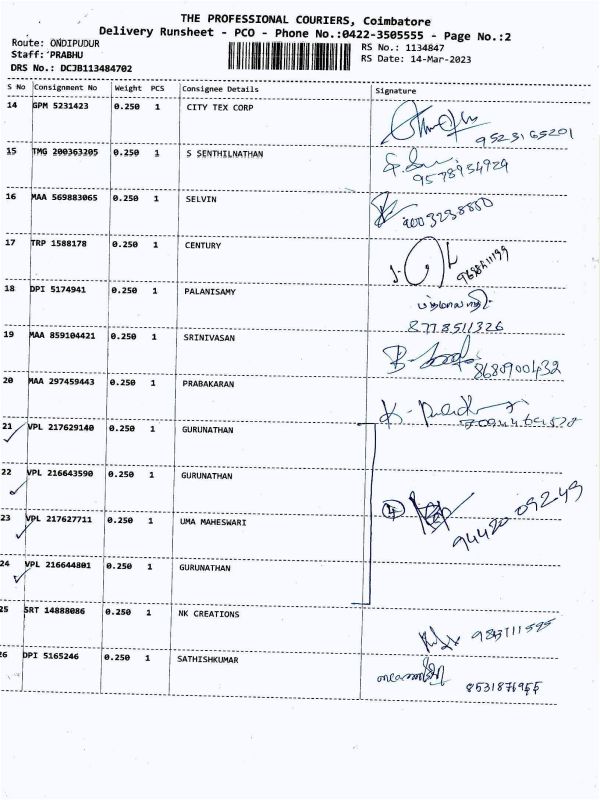 THE PROFESSIONAL COURIERS, Coimbatore
Delivery Runsheet - PCO - Phone No.:0422-3505555 - Page No.:2
Route: ONDIPUDUR RS No.: 1134847
Staff: PRABHU RS Date: 14-Mar-2023
DRS No.: DCJB113484702
S No Consignment No Weight PCS Consignee Details Signature
14 GPM 5231423 0.250 1 CITY TEX CORP
9523165201
15 TMG 200363205 0.250 1 S SENTHILNATHAN
9578934929
16 MAA 569883065 0.250 1 SELVIN
17 TRP 1588178 0.250 1 CENTURY
18 DPI 5174941 0.250 1 PALANISAMY
8778511326
19 MAA 859104421 0.250 1 SRINIVASAN
8680900432
20 MAA 297459443 0.250 1 PRABAKARAN
21 VPL 217629140 0.250 1 GURUNATHAN
22 VPL 216643590 0.250 1 GURUNATHAN
23 VPL 217627711 0.250 1 UMA MAHESWARI
4 94420 09249
24 VPL 216644801 0.250 1 GURUNATHAN
25 SRT 14888086 0.250 1 NK CREATIONS
26 DPI 5165246 0.250 1 SATHISHKUMAR
8531876955